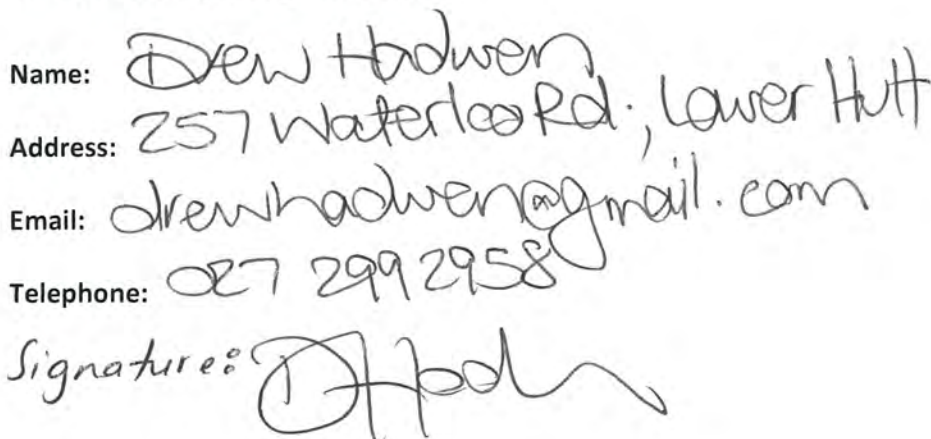 Name: Drew Hadwen
Address: 257 Waterloo Rd, Lower Hutt
Email: drewhadwen@gmail.com
Telephone: 027 299 2958
Signature: DHad